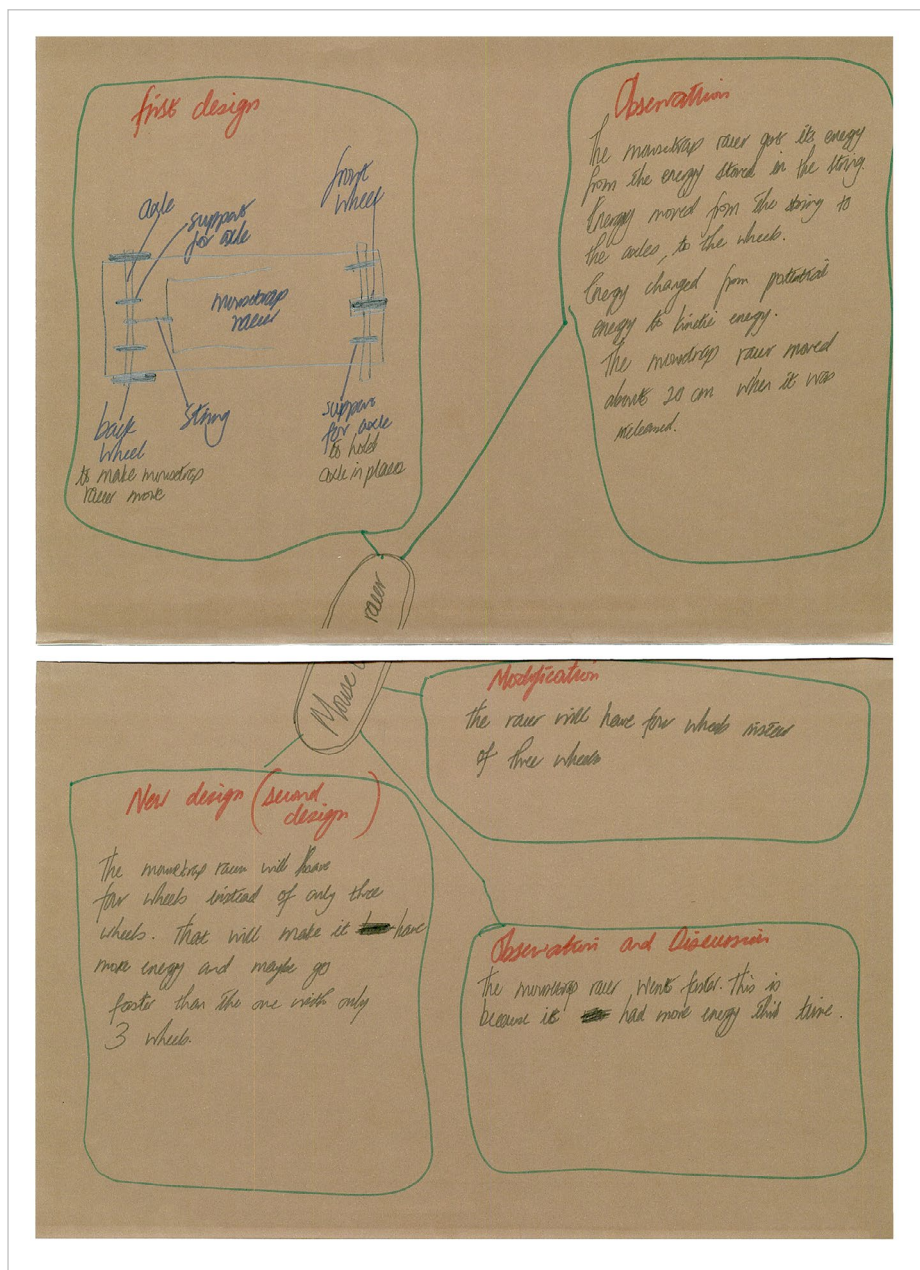 first design
axle
support
for axle
front
wheel
mousetrap
racer
back
wheel
to make mousetrap
racer move
string
support
for axle
to hold
axle in place
Observation
The mousetrap racer got its energy
from the energy stored in the string.
Energy moved from the string to
the axles, to the wheels.
Energy changed from potential
energy to kinetic energy.
The mousetrap racer moved
about 20 cm when it was
released.
racer
Mouse
Modification
the racer will have four wheels instead
of three wheels
New design (second
design)
The mousetrap racer will have
four wheels instead of only three
wheels. That will make it have
more energy and maybe go
faster than the one with only
3 wheels.
Observation and Discussion
The mousetrap racer went faster. This is
because it had more energy this time.